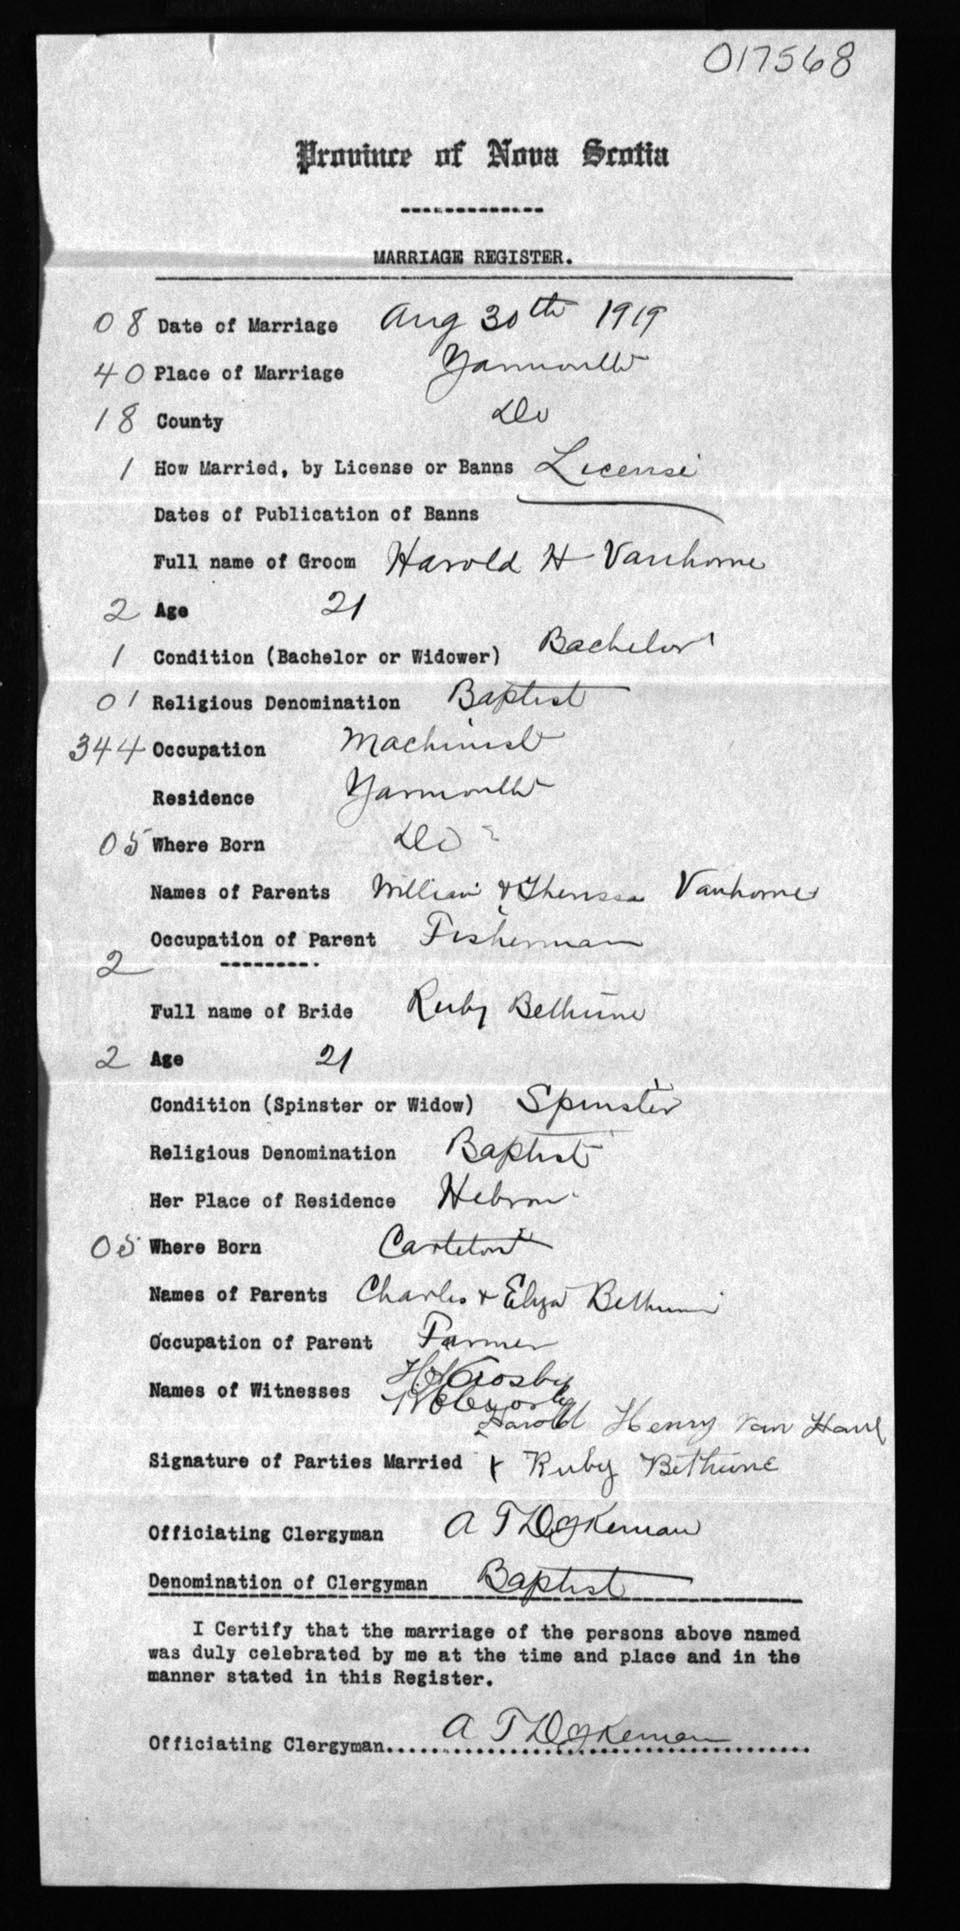 017568
Province of Nova Scotia
MARRIAGE REGISTER.
08 Date of Marriage Aug 30th 1919
40 Place of Marriage Yarmouth
18 County Do
1 How Married, by License or Banns License
Dates of Publication of Banns
Full name of Groom Harold H Vanhorne
2 Age 21
1 Condition (Bachelor or Widower) Bachelor
01 Religious Denomination Baptist
344 Occupation Machinist
Residence Yarmouth
05 Where Born Do
Names of Parents William & Theressa Vanhorne
Occupation of Parent Fisherman
2
Full name of Bride Ruby Bethune
2 Age 21
Condition (Spinster or Widow) Spinster
Religious Denomination Baptist
Her Place of Residence Hebron
05 Where Born Carleton
Names of Parents Charles & Eliza Bethune
Occupation of Parent Farmer
Names of Witnesses Crosby
Harold Henry Van Horne
Signature of Parties Married Ruby Bethune
Officiating Clergyman A T Dykeman
Denomination of Clergyman Baptist
I Certify that the marriage of the persons above named
was duly celebrated by me at the time and place and in the
manner stated in this Register.
Officiating Clergyman A T Dykeman